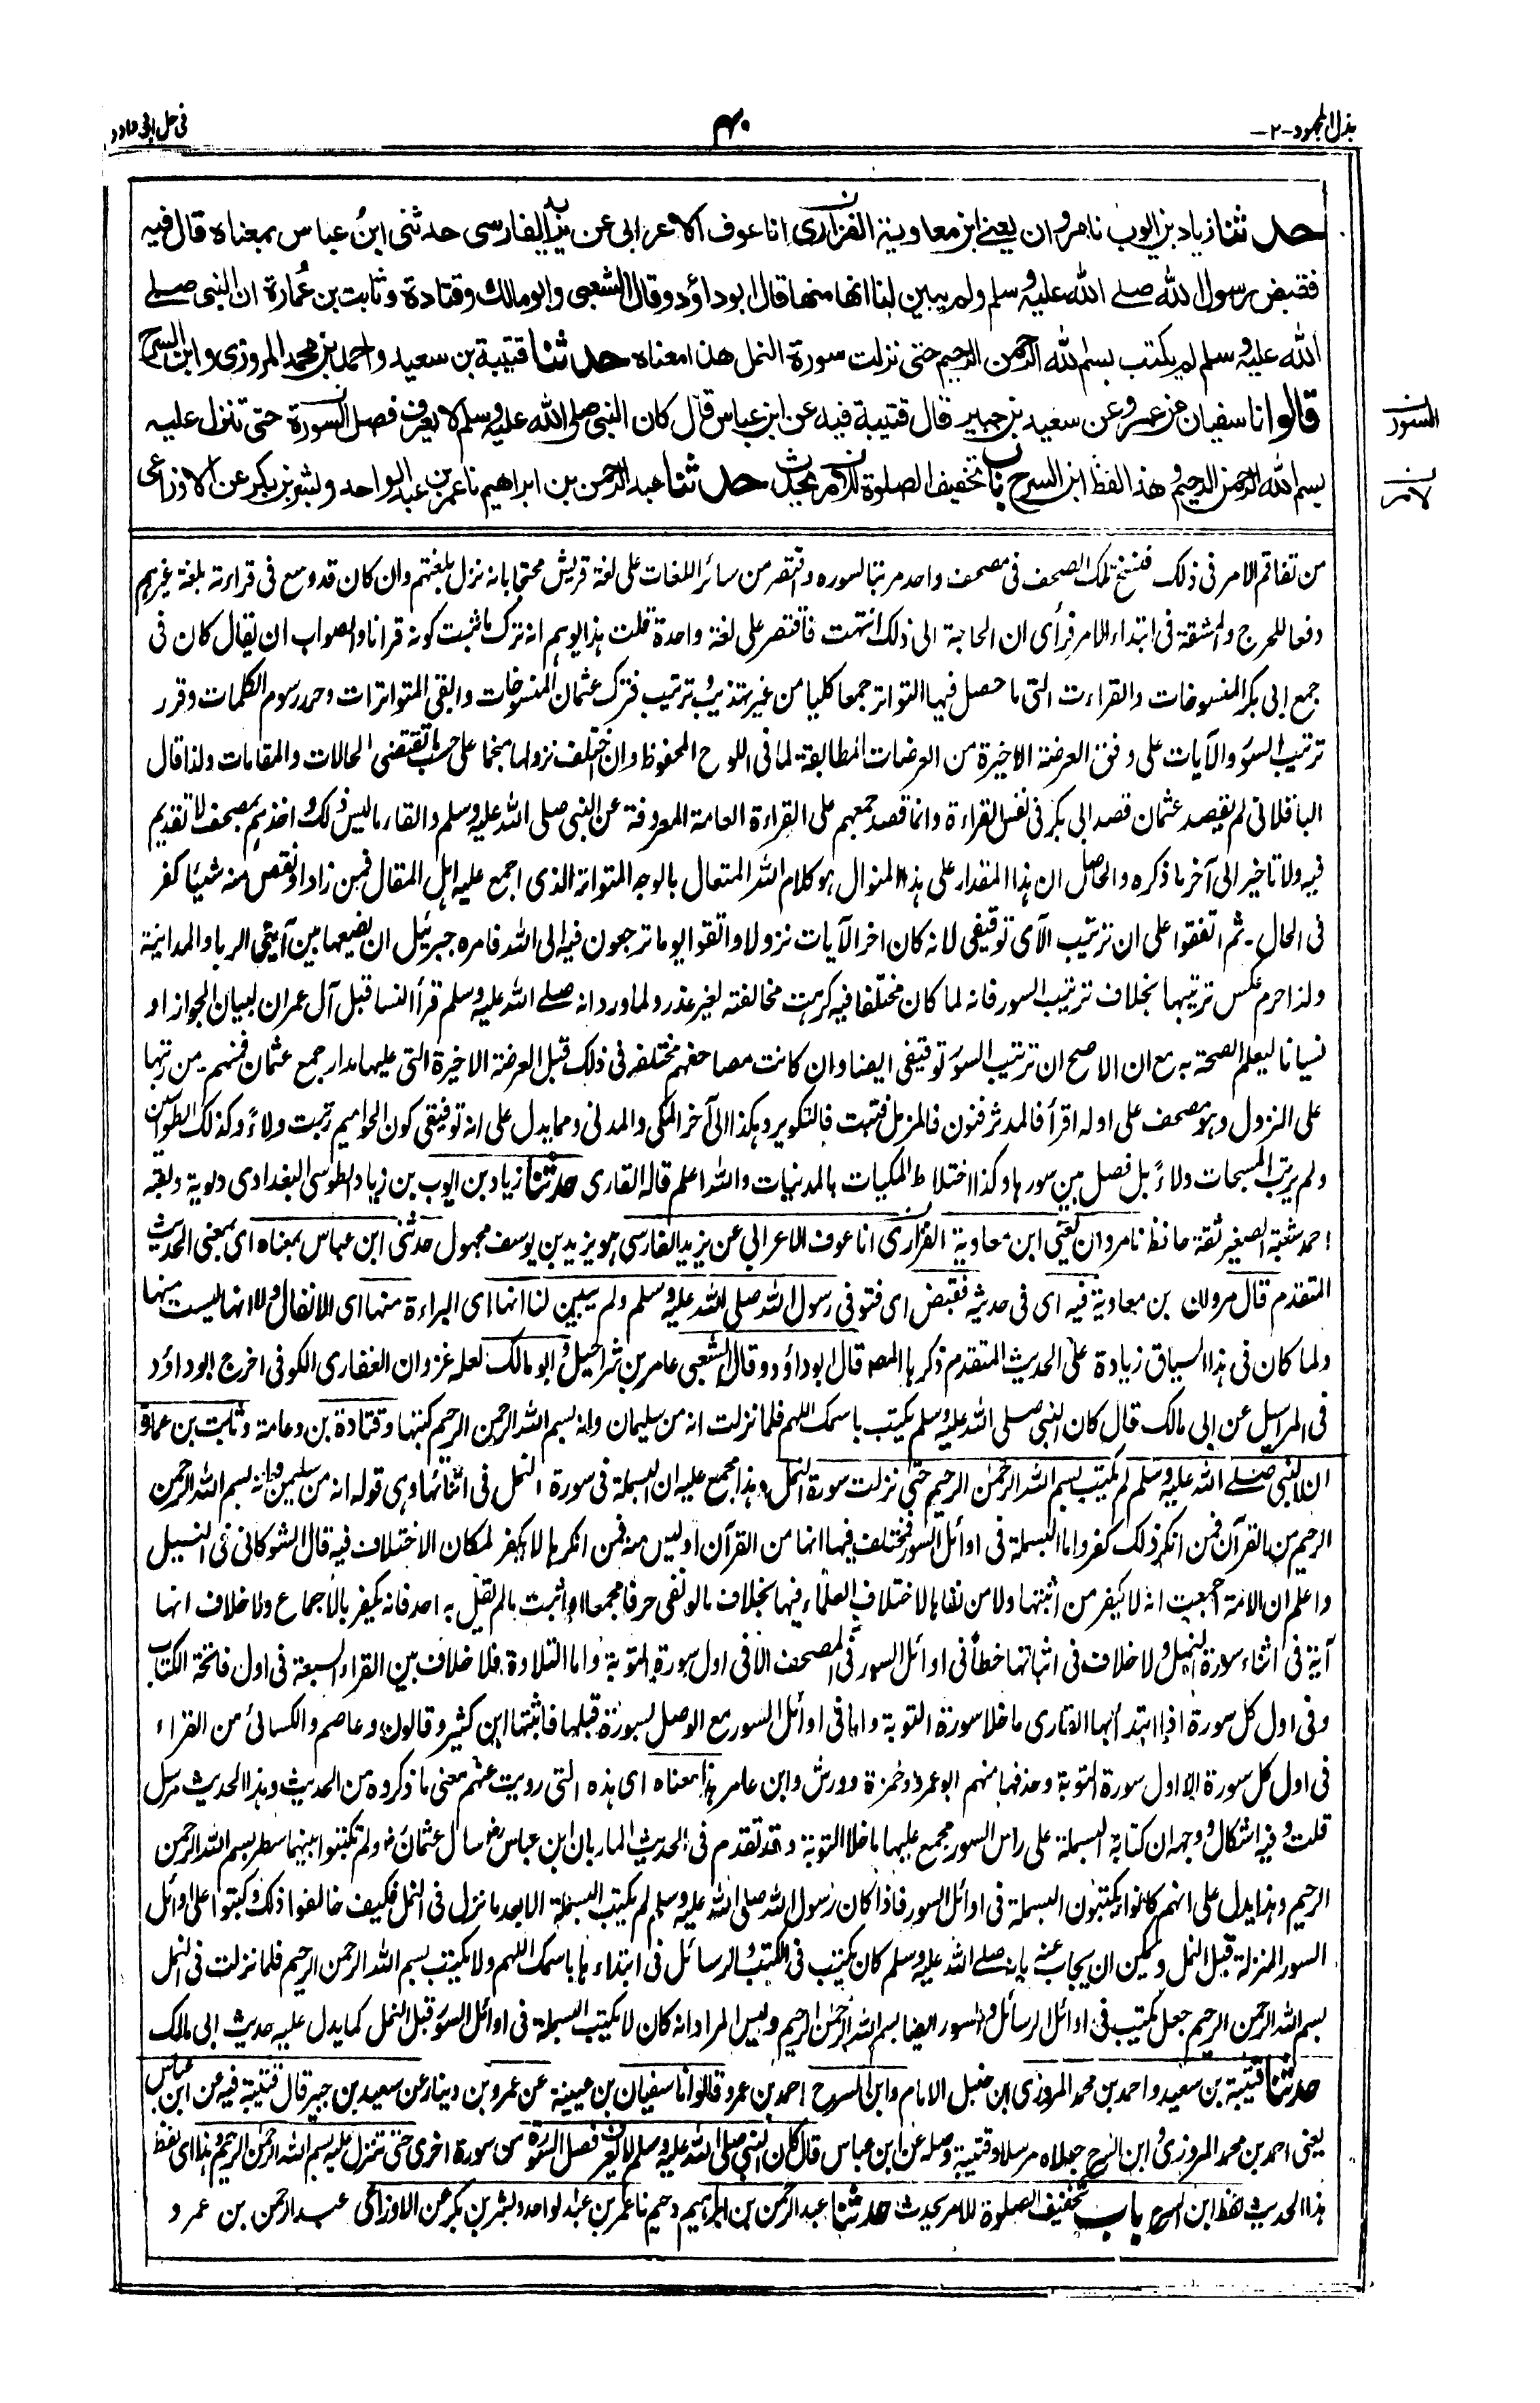 بذل المجهود-٢-
٤٠
في حل ابي داود
حدثنا زياد بن ايوب نا مروان يعني ابن معاوية الفزاري انا عوف الاعرابي عن يزيد الفارسي حدثني ابن عباس بمعناه قال فيه
فقبض رسول الله صلے الله عليه وسلم ولم يبين لنا انها منها قال ابوداؤد وقال الشعبي وابو مالك وقتادة وثابت بن عُمارة ان النبي صلے
الله عليه وسلم لم يكتب بسم الله الرحمن الرحيم حتى نزلت سورة النمل هذا معناه حدثنا قتيبة بن سعيد واحمد بن محمد المروزي وابن السرح
قالوا نا سفيان عن عمرو عن سعيد بن جبير قال قتيبة فيه عن ابن عباس قال كان النبي صلى الله عليه وسلم لا يعرف فصل السورة حتى تنزل عليه
بسم الله الرحمن الرحيم وهذا لفظ ابن السرح باب تخفيف الصلوة للامر يحدث حدثنا عبد الرحمن بن ابراهيم نا عمر بن عبد الواحد وبشر بن بكر عن الاوزاعي
السور
لامر
من تفاقم الامر في ذلك فنسخ تلك الصحف في مصحف واحد مرتبا لسوره واقتصر من سائر اللغات على لغة قريش محتجا بانه نزل بلغتهم وان كان قد وسع في قراءته بلغة غيرهم
دفعا للحرج والمشقة في ابتداء الامر فرأى ان الحاجة الى ذلك انتهت فاقتصر على لغة واحدة قلت هذا يوهم انه ترك ما ثبت كونه قرانا والصواب ان يقال كان في
جمع ابي بكر المنسوخات والقراءت التي ما حصل فيها التواتر جمعا كليا من غير تهذيب وترتيب فترك عثمان المنسوخات وابقى المتواترات وحرر رسوم الكلمات وقرر
ترتيب السور والآيات على وفق العرضة الاخيرة من العرضات المطابقة لما في اللوح المحفوظ وان اختلف نزولها منجما على حسب ما تقتضي الحالات والمقامات ولذا قال
الباقلاني لم يقصد عثمان قصد ابي بكر في نفس القراءة وانما قصد جمعهم على القراءة العامة المعروفة عن النبي صلى الله عليه وسلم والقاء ما ليس ذلك واخذهم بمصحف لا تقديم
فيه ولا تاخير الى آخر ما ذكره والحاصل ان هذا المقدار على هذا المنوال هو كلام الله المتعال بالوجه المتواتر الذي اجمع عليه اهل المقال فمن زاد او نقص منه شيئا كفر
في الحال- ثم اتفقوا على ان ترتيب الآي توقيفي لانه كان اخر الآيات نزولا واتقوا يوما ترجعون فيه الى الله فامره جبرئيل ان يضيعها بين آيتي الربا والمداينة
ولذا حرم عكس ترتيبها بخلاف ترتيب السور فانه لما كان مختلفا فيه كرهت مخالفته لغير عذر ولما ورد انه صلے الله عليه وسلم قرأ النسا قبل آل عمران لبيان الجواز او
نسيانا ليعلم الصحة به مع ان الاصح ان ترتيب السور توقيفي ايضا وان كانت مصاحفهم مختلفة في ذلك قبل العرضة الاخيرة التي عليها مدار جمع عثمان فمنهم من رتبها
على النزول وهو مصحف على اوله اقرأ فالمدثر فنون فالمزمل فتبت فالتكوير وهكذا الى آخر المكي والمدني ومما يدل على انه توقيفي كون الحواميم رتبت ولاءً وكذلك الطواسين
ولم يرتب المسبحات ولاءً بل فصل بين سورها وكذا اختلاط المكيات بالمدنيات والله اعلم قاله القاري حدثنا زياد بن ايوب بن زياد الطوسي البغدادي دلوية ولقبه
احمد شعبة الصغير ثقة حافظ نا مروان يعني ابن معاوية الفزاري انا عوف الاعرابي عن يزيد الفارسي هو يزيد بن يوسف مجهول حدثني ابن عباس بمعناه اى بمعنى الحديث
المتقدم قال مروان بن معاوية فيه اى في حديثه فقبض اى فتوفي رسول الله صلى الله عليه وسلم ولم يبين لنا انها اى البراءة منها اى الانفال ولا انها ليست منها
ولما كان في هذا السياق زيادة على الحديث المتقدم ذكرها المصـ قال ابو داؤد وقال الشعبي عامر بن شراحيل وابو مالك لعله غزوان الغفاري الكوفي اخرج ابو داؤد
في المراسيل عن ابي مالك قال كان النبي صلى الله عليه وسلم يكتب باسمك اللهم فلما نزلت انه من سليمان وانه بسم الله الرحمن الرحيم كتبها وقتادة بن دعامة وثابت بن عمارة
ان النبي صلے الله عليه وسلم لم يكتب بسم الله الرحمن الرحيم حتى نزلت سورة النمل وهذا مجمع عليه ان البسملة في سورة النمل في اثنائها وهي قوله انه من سليمن وانه بسم الله الرحمن
الرحيم من القرآن فمن انكر ذلك كفر واما البسملة في اوائل السور فمختلف فيها انها من القرآن اوليس منه فمن انكرها لا يكفر لمكان الاختلاف فيه قال الشوكاني في النيل
واعلم ان الامة اجمعت انه لا يكفر من اثبتها ولا من نفاها لاختلاف العلماء فيها بخلاف ما لو نفى حرفا مجمعا او اثبت ما لم يقل به احد فانه يكفر بالاجماع ولا خلاف انها
آية في اثناء سورة النمل ولا خلاف في اثباتها خطا في اوائل السور في المصحف الا في اول سورة التوبة واما التلاوة فلا خلاف بين القراء السبعة في اول فاتحة الكتاب
وفي اول كل سورة اذا ابتدأ بها القاري ما خلا سورة التوبة واما في اوائل السور مع الوصل بسورة قبلها فاثبتها ابن كثير وقالون وعاصم والكسائي من القراء
في اول كل سورة الا اول سورة التوبة وحذفها منهم ابو عمرو وحمزة وورش وابن عامر هذا معناه اى هذه التي رويت عنهم معنى ما ذكروه من الحديث وهذا الحديث مرسل
قلت وفيه اشكال ووجهه ان كتابة البسملة على راس السور مجمع عليها ما خلا التوبة وقد تقدم في الحديث المار بان ابن عباس سأل عثمان ولم تكتبوا بينهما سطر بسم الله الرحمن
الرحيم وهذا يدل على انهم كانوا يكتبون البسملة في اوائل السور فاذا كان رسول الله صلى الله عليه وسلم لم يكتب البسملة الا بعد ما نزل في النمل فكيف خالفوا ذلك وكتبوا على اوائل
السور المنزلة قبل النمل ويمكن ان يجاب عنه بانه صلے الله عليه وسلم كان يكتب في الكتب والرسائل في ابتداءها باسمك اللهم ولا يكتب بسم الله الرحمن الرحيم فلما نزلت في النمل
بسم الله الرحمن الرحيم جعل يكتب في اوائل الرسائل والسور ايضا بسم الله الرحمن الرحيم وليس المراد انه كان لا يكتب البسملة في اوائل السور قبل النمل كما يدل عليه حديث ابي مالك
حدثنا قتيبة بن سعيد واحمد بن محمد المروزي ابن حنبل الامام وابن السرح احمد بن عمرو قالوا نا سفيان بن عيينة عن عمرو بن دينار عن سعيد بن جبير قال قتيبة فيه عن ابن عباس
يعني احمد بن محمد المروزي وابن السرح جعلاه مرسلا وقتيبة وصله عن ابن عباس قال كان النبي صلى الله عليه وسلم لا يعرف فصل السورة من سورة اخرى حتى تنزل عليه بسم الله الرحمن الرحيم وهذا اى لفظ
هذا الحديث لفظ ابن السرح باب تخفيف الصلوة للامر يحدث حدثنا عبد الرحمن بن ابراهيم دحيم نا عمر بن عبد الواحد وبشر بن بكر عن الاوزاعي عبد الرحمن بن عمرو